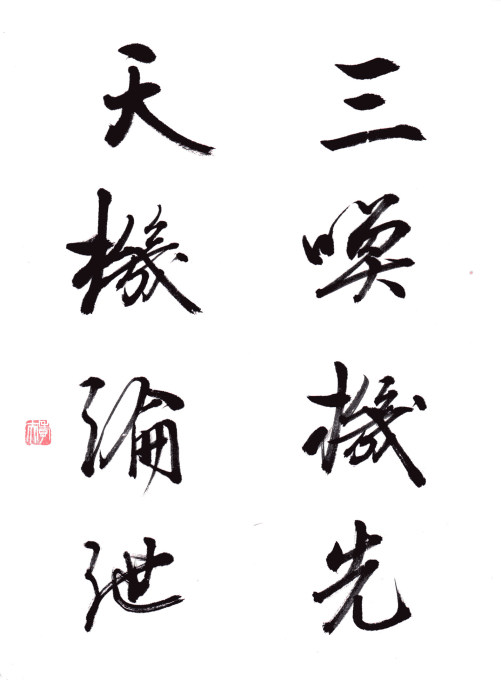 三喚機先
天機淪泄